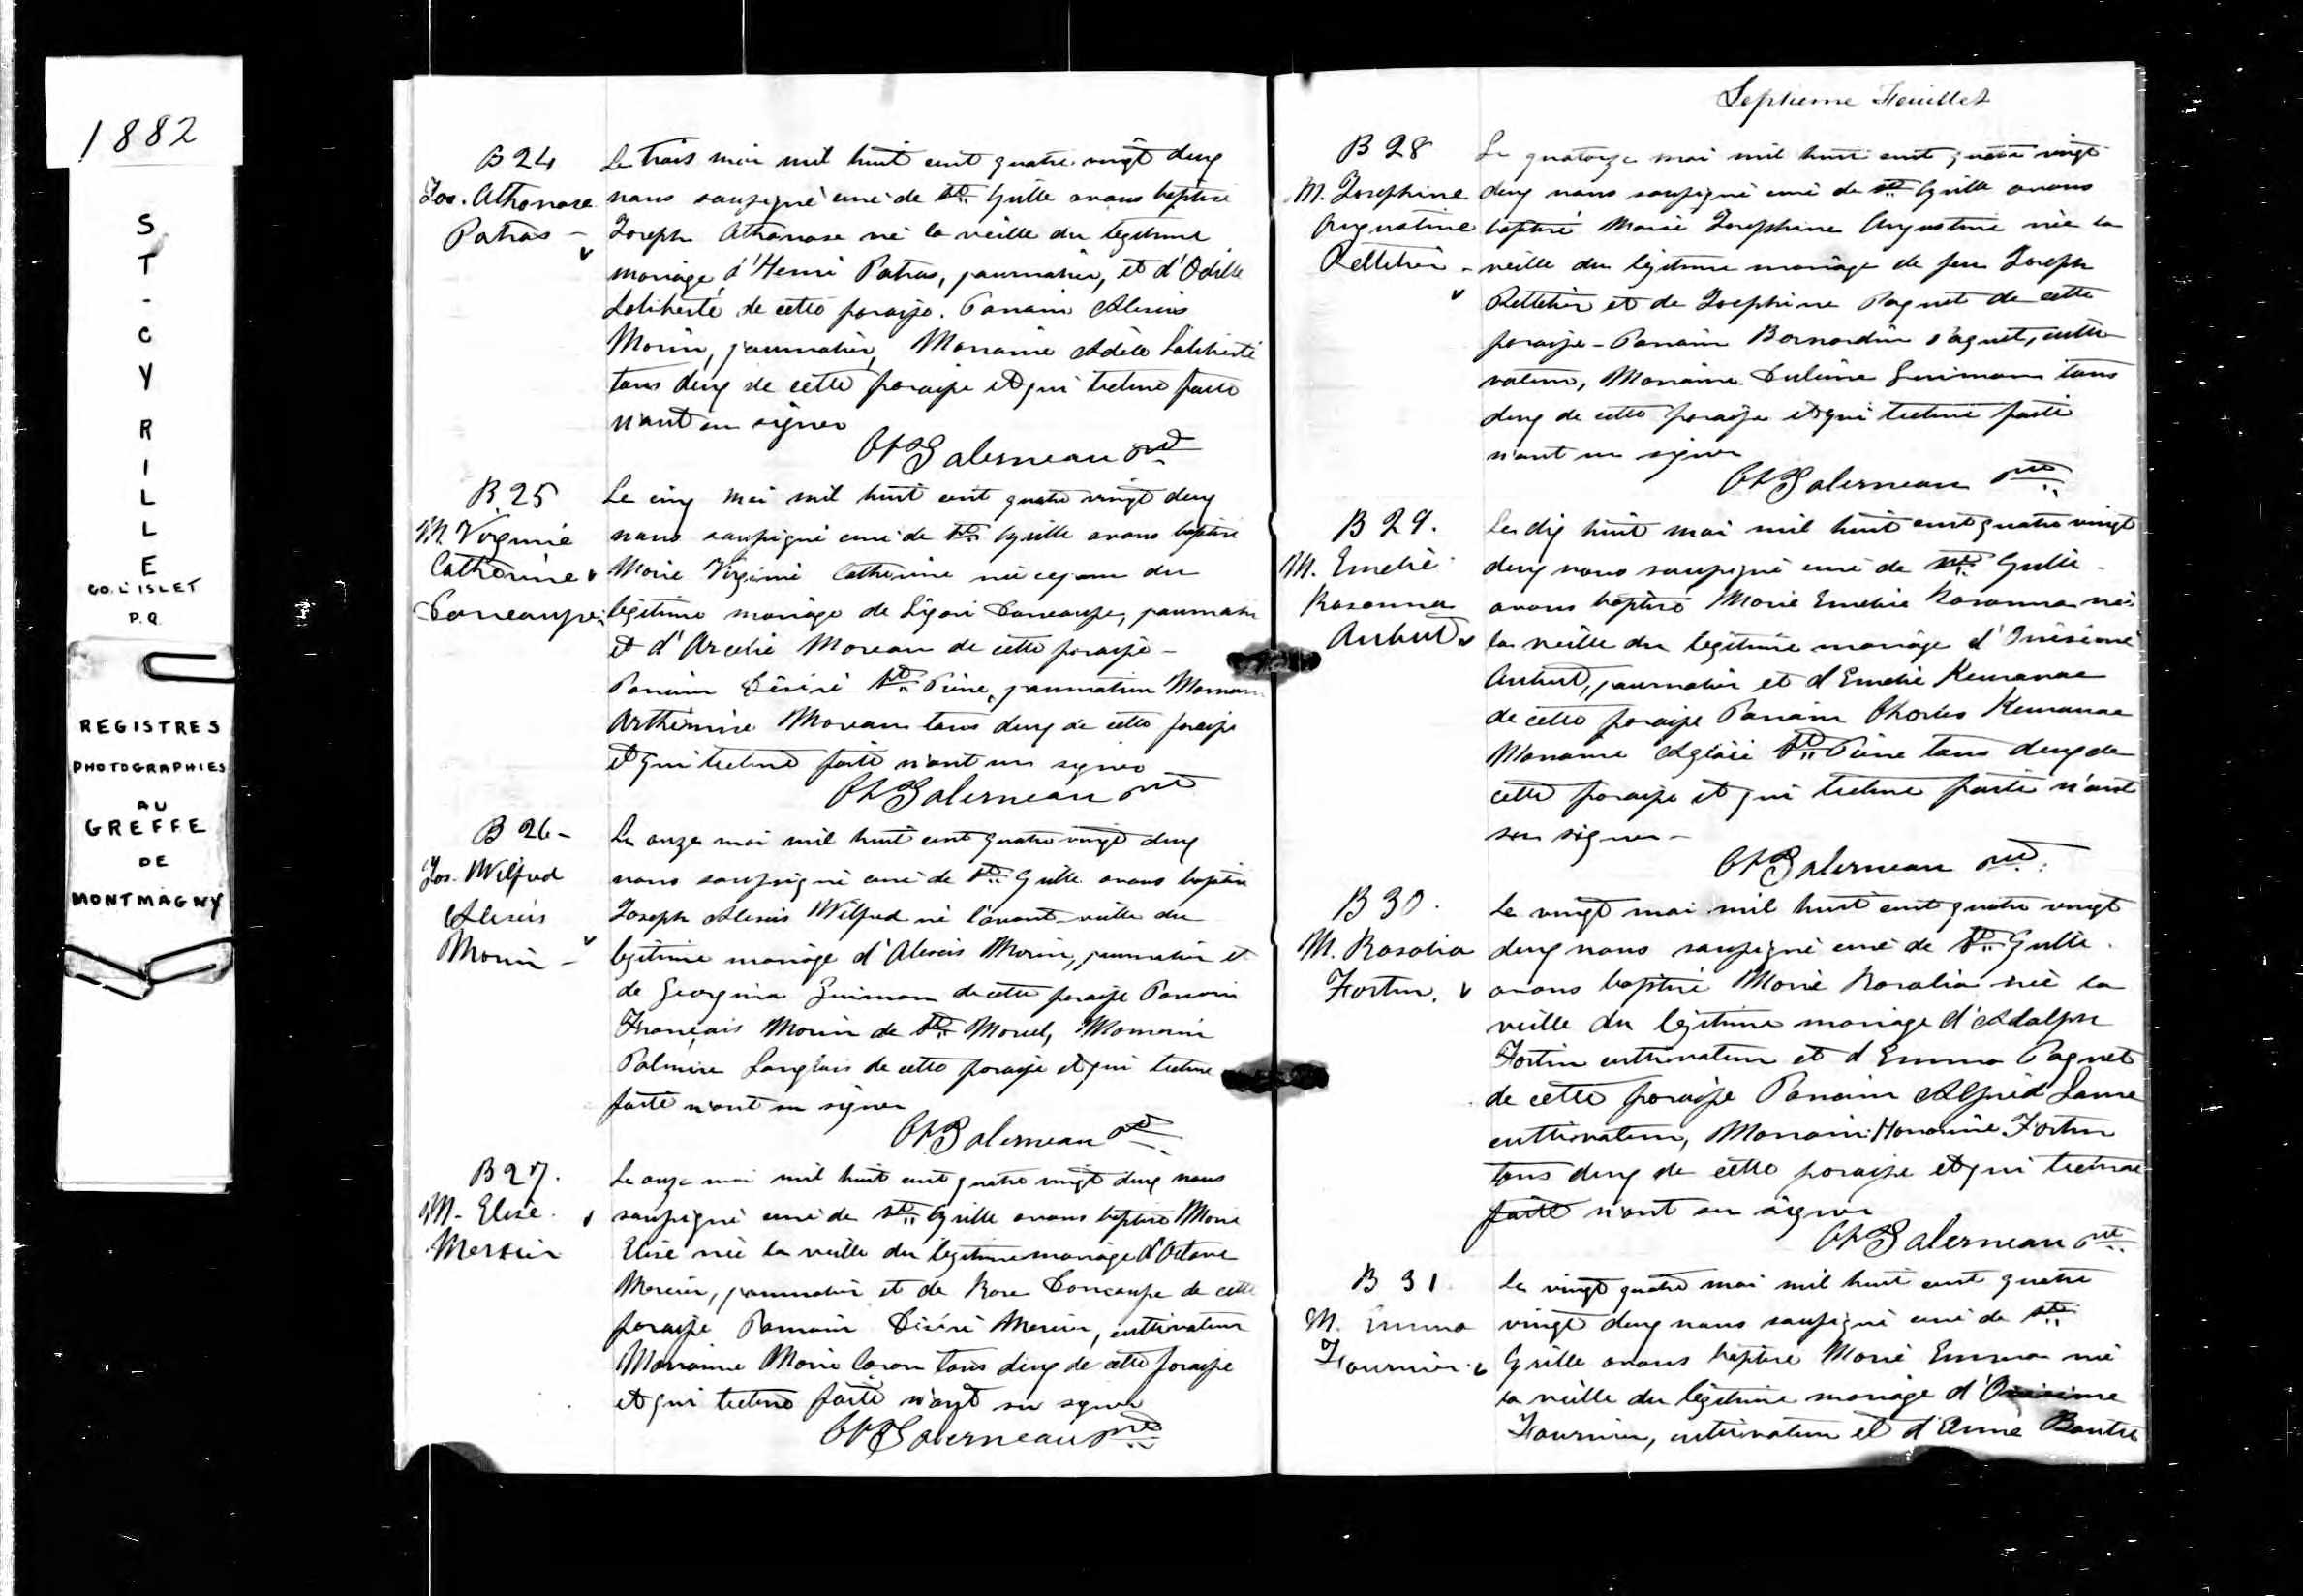 1882
ST-CYRILLE
CO. L'ISLET
P.Q.
REGISTRES
PHOTOGRAPHIES
AU
GREFFE
DE
MONTMAGNY
B 24
Jos. Athanase
Patras -
Le trois mai mil huit cent quatre vingt deux
nous soussigné curé de St. Cyrille avons baptisé
Joseph Athanase né la veille du légitime
mariage d'Henri Patras, journalier, et d'Odille
Laliberté de cette paroisse. Parrain Alexis
Morin, journalier, Marraine Adèle Laliberté
tous deux de cette paroisse et qui lecture faite
n'ont su signer
Galerneau ptre
B. 25
M. Virginie
Catherine
Le cinq mai mil huit cent quatre vingt deux
nous soussigné curé de St. Cyrille avons baptisé
Marie Virginie Catherine née ce jour du
légitime mariage de Ligori journalier
et d'Arcelie Moreau de cette paroisse -
Parrain Désiré St. Pierre, journalier Marraine
Arthémise Moreau tous deux de cette paroisse
et qui lecture faite n'ont su signer
Galerneau ptre
B 26 -
Jos. Wilfred
Alexis
Morin -
Le onze mai mil huit cent quatre vingt deux
nous soussigné curé de St. Cyrille avons baptisé
Joseph Alexis Wilfred né l'avant-veille du
légitime mariage d'Alexis Morin, journalier et
de Georgina Guimon de cette paroisse Parrain
François Morin de St. Marcel, Marraine
Palmire Langlais de cette paroisse et qui lecture
faite n'ont su signer
Galerneau ptre
B 27.
M. Elise
Mercier
Le onze mai mil huit cent quatre vingt deux nous
soussigné curé de St. Cyrille avons baptisé Marie
Elise née la veille du légitime mariage d'Octave
Mercier, journalier et de Rose de cette
paroisse Parrain Désiré Mercier, cultivateur
Marraine Marie Caron tous deux de cette paroisse
et qui lecture faite n'ont su signer
Galerneau ptre
Septieme Feuillet
B 28
M. Josephine
Augustine
Pelletier -
Le quatorze mai mil huit cent quatre vingt
deux nous soussigné curé de St. Cyrille avons
baptisé Marie Josephine Augustine née la
veille du légitime mariage de feu Joseph
Pelletier et de Josephine Paquet de cette
paroisse - Parrain Bernardin Paquet, culti-
vateur, Marraine Guimon tous
deux de cette paroisse et qui lecture faite
n'ont su signer
Galerneau ptre
B 29.
M. Emelie
Rosanna
Aubut
Le dix huit mai mil huit cent quatre vingt
deux nous soussigné curé de St. Cyrille
avons baptisé Marie Emelie Rosanna née
la veille du légitime mariage d'Onésime
Aubut, journalier et d'Emelie Kerouac
de cette paroisse Parrain Charles Kerouac
Marraine Aglaée St. Pierre tous deux de
cette paroisse et qui lecture faite n'ont
su signer -
Galerneau ptre.
B 30.
M. Rosalia
Fortin.
Le vingt mai mil huit cent quatre vingt
deux nous soussigné curé de St. Cyrille
avons baptisé Marie Rosalia née la
veille du légitime mariage d'Adolphe
Fortin cultivateur et d'Emma Paquet
de cette paroisse Parrain Alfred
cultivateur, Marraine Honorine Fortin
tous deux de cette paroisse et qui lecture
faite n'ont su signer
Galerneau ptre
B 31.
M. Emma
Fournier
Le vingt quatre mai mil huit cent quatre
vingt deux nous soussigné curé de St.
Cyrille avons baptisé Marie Emma née
la veille du légitime mariage d'Onésime
Fournier, cultivateur et d'